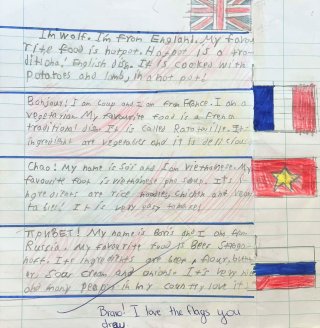 Im Wolf. I'm from England. My favou
rite food is hotpot. Hotpot is a tra-
ditional English dish. It is cooked with
potatoes and lamb, in a hot pot!
Bonjour! I am Loup and I am from France. I am a
vegetarian. My favourite food is a French
traditional dish. It is called Ratatouille. It's
ingredient are vegetables and it is delicious.
Chao! My name is Sói and I am Vietnamese. My
favourite food is Vietnamese pho soup. It's in
gredients are rice noodles, chicken and vege
tables! It is very easy to make!
Привет! My name is Boris and I am from
Russia. My favourite food is Beef Stroga-
noff. It's ingredients are beef, flour, butt
er, sour cream and onions. It's very nice
and many people in my country love it!
Bravo! I love the flags you
drew